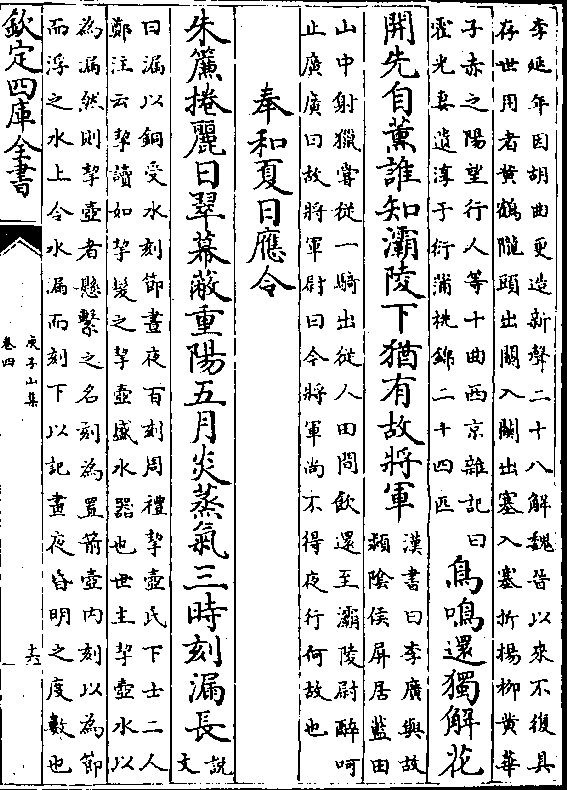 李延年因胡曲更造新聲二十八解魏晉以來不復具
存世用者黄鶴隴頭出關入關出塞入塞折楊柳黄華
子赤之陽望行人等十曲西京雜記曰
霍光妻遺淳于衍蒲桃錦二十四匹
鳥鳴還獨解花
開先自薰誰知灞陵下猶有故將軍
漢書曰李廣與故
頴陰侯屏居藍田
山中射獵嘗從一騎出從人田間飲還至灞陵尉醉呵
止廣廣曰故將軍尉曰今將軍尚不得夜行何故也
奉和夏日應令
朱簾捲麗日翠幕蔽重陽五月炎蒸氣三時刻漏長
說
文
曰漏以銅受水刻節晝夜百刻周禮挈壺氏下士二人
鄭注云挈讀如挈髮之挈壺盛水器也世主挈壺水以
為漏然則挈壺者懸繫之名刻為置箭壺内刻以為節
而浮之水上令水漏而刻下以記晝夜昏明之度數也
欽定四庫全書
庾子山集
卷四
十六